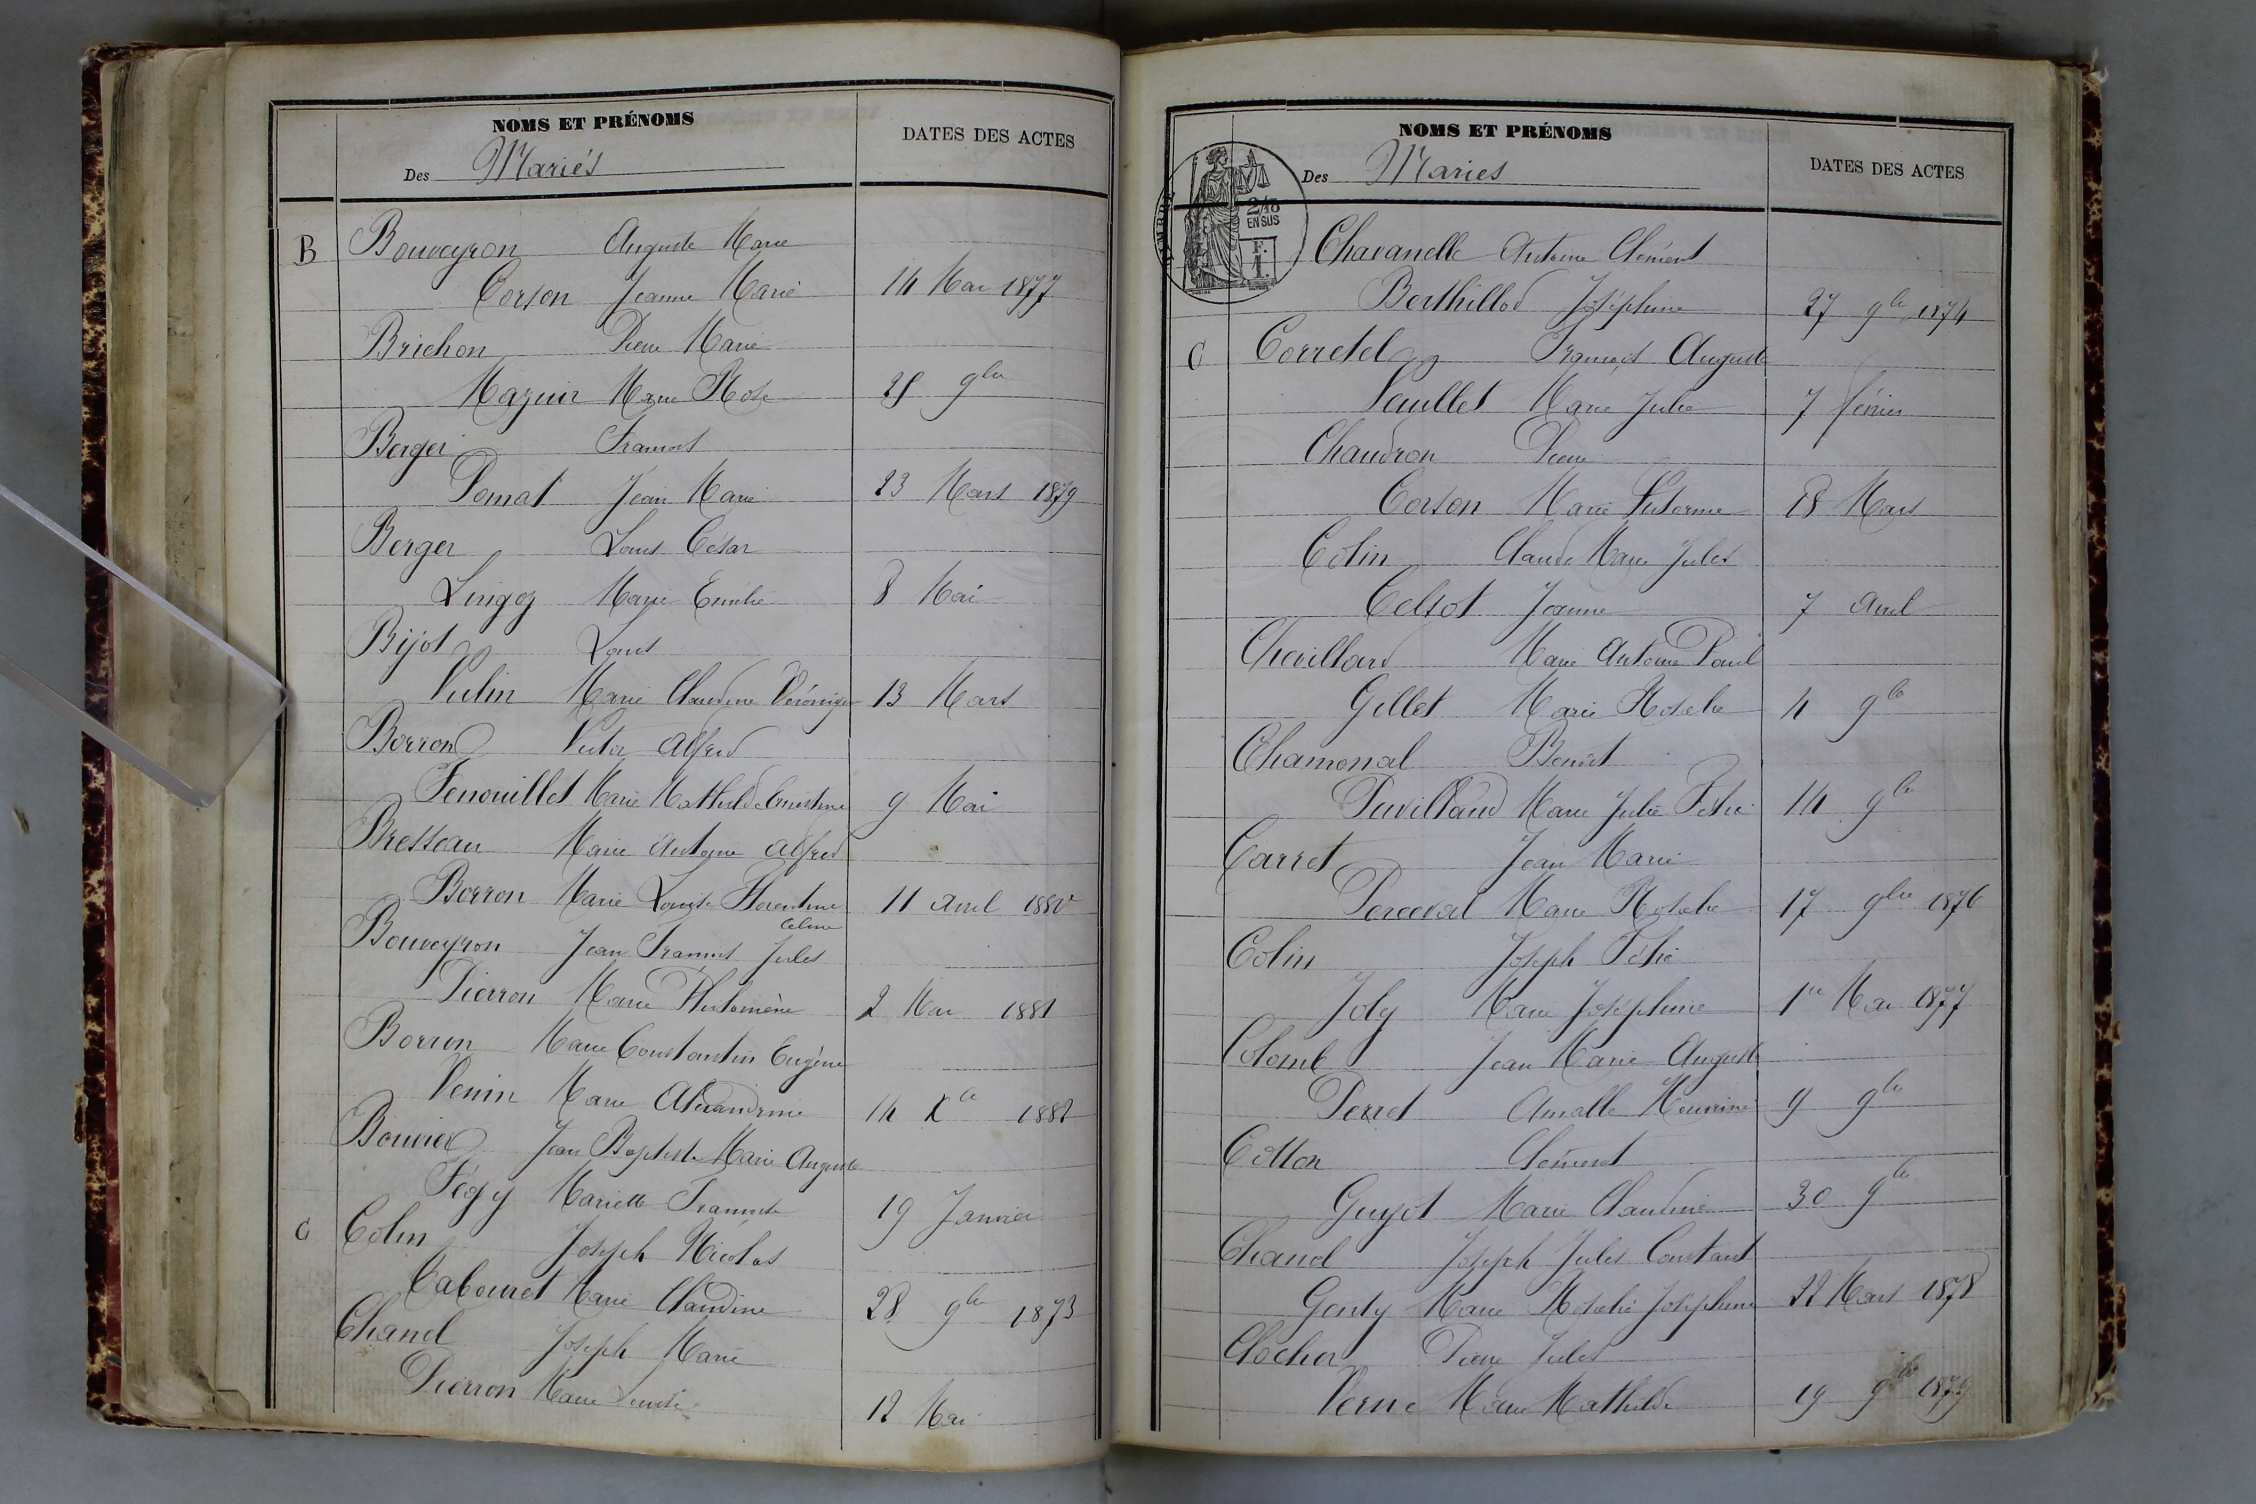 NOMS ET PRÉNOMS
DATES DES ACTES
Des Mariés
B Bouveyron Auguste Marie
Corson Jeanne Marie 14 Mai 1877
Brichon Pierre Marie
Mazuir Marie Rose 28 9bre
Berger Francois
Pomat Jean Marie 23 Mars 1879
Berger Louis César
Lingoz Marie Emilie 8 Mai
Bijot Louis
Vulin Marie Claudine Véronique 13 Mars
Borron Victor Alfred
Fenouillet Marie Mathilde Ernestine 9 Mai
Bresseau Marie Antoine Alfred
Borron Marie Louise Florentine 11 Avril 1880
Celine
Bouveyron Jean Francois Jules
Pierron Marie Philomène 2 Mai 1881
Borron Marie Constantin Eugène
Venin Marie Alexandrine 14 Xbre 1882
Bouvier Jean Baptiste Marie Auguste
Fégy Mariette 19 Janvier
C Colin Joseph Nicolas
Cabouret Marie Claudine 28 9bre 1873
Chanel Joseph Marie
Pierron Marie 12 Mai
NOMS ET PRÉNOMS
DATES DES ACTES
Des Mariés
TIMBRE
2/10
EN SUS
F.
1.
Chavanelle Antoine Clément
Berthillod Joséphine 27 9bre 1874
C Corretel François Auguste
Feuillet Marie Julie 7 février
Chaudron Pierre
Corson Marie 18 Mars
Colin Claude Marie Jules
Celsot Jeanne 7 Avril
Chevillard Marie Antoine Paul
Gillet Marie Rosalie 4 9bre
Chamonal Benoit
Puvilland Marie Julie 14 9bre
Carret Jean Marie
Perceval Marie Rosalie 17 9bre 1876
Colin Joseph
Joly Marie Joséphine 1er Mai 1877
Colomb Jean Marie Auguste
Perret 9 9bre
Cotton Clément
Guyot Marie Claudine 30 9bre
Chanel Joseph Jules Constant
Genty Marie Rosalie Joséphine 22 Mars 1878
Clocher Pierre Jules
Verne Marie Mathilde 19 9bre 1879